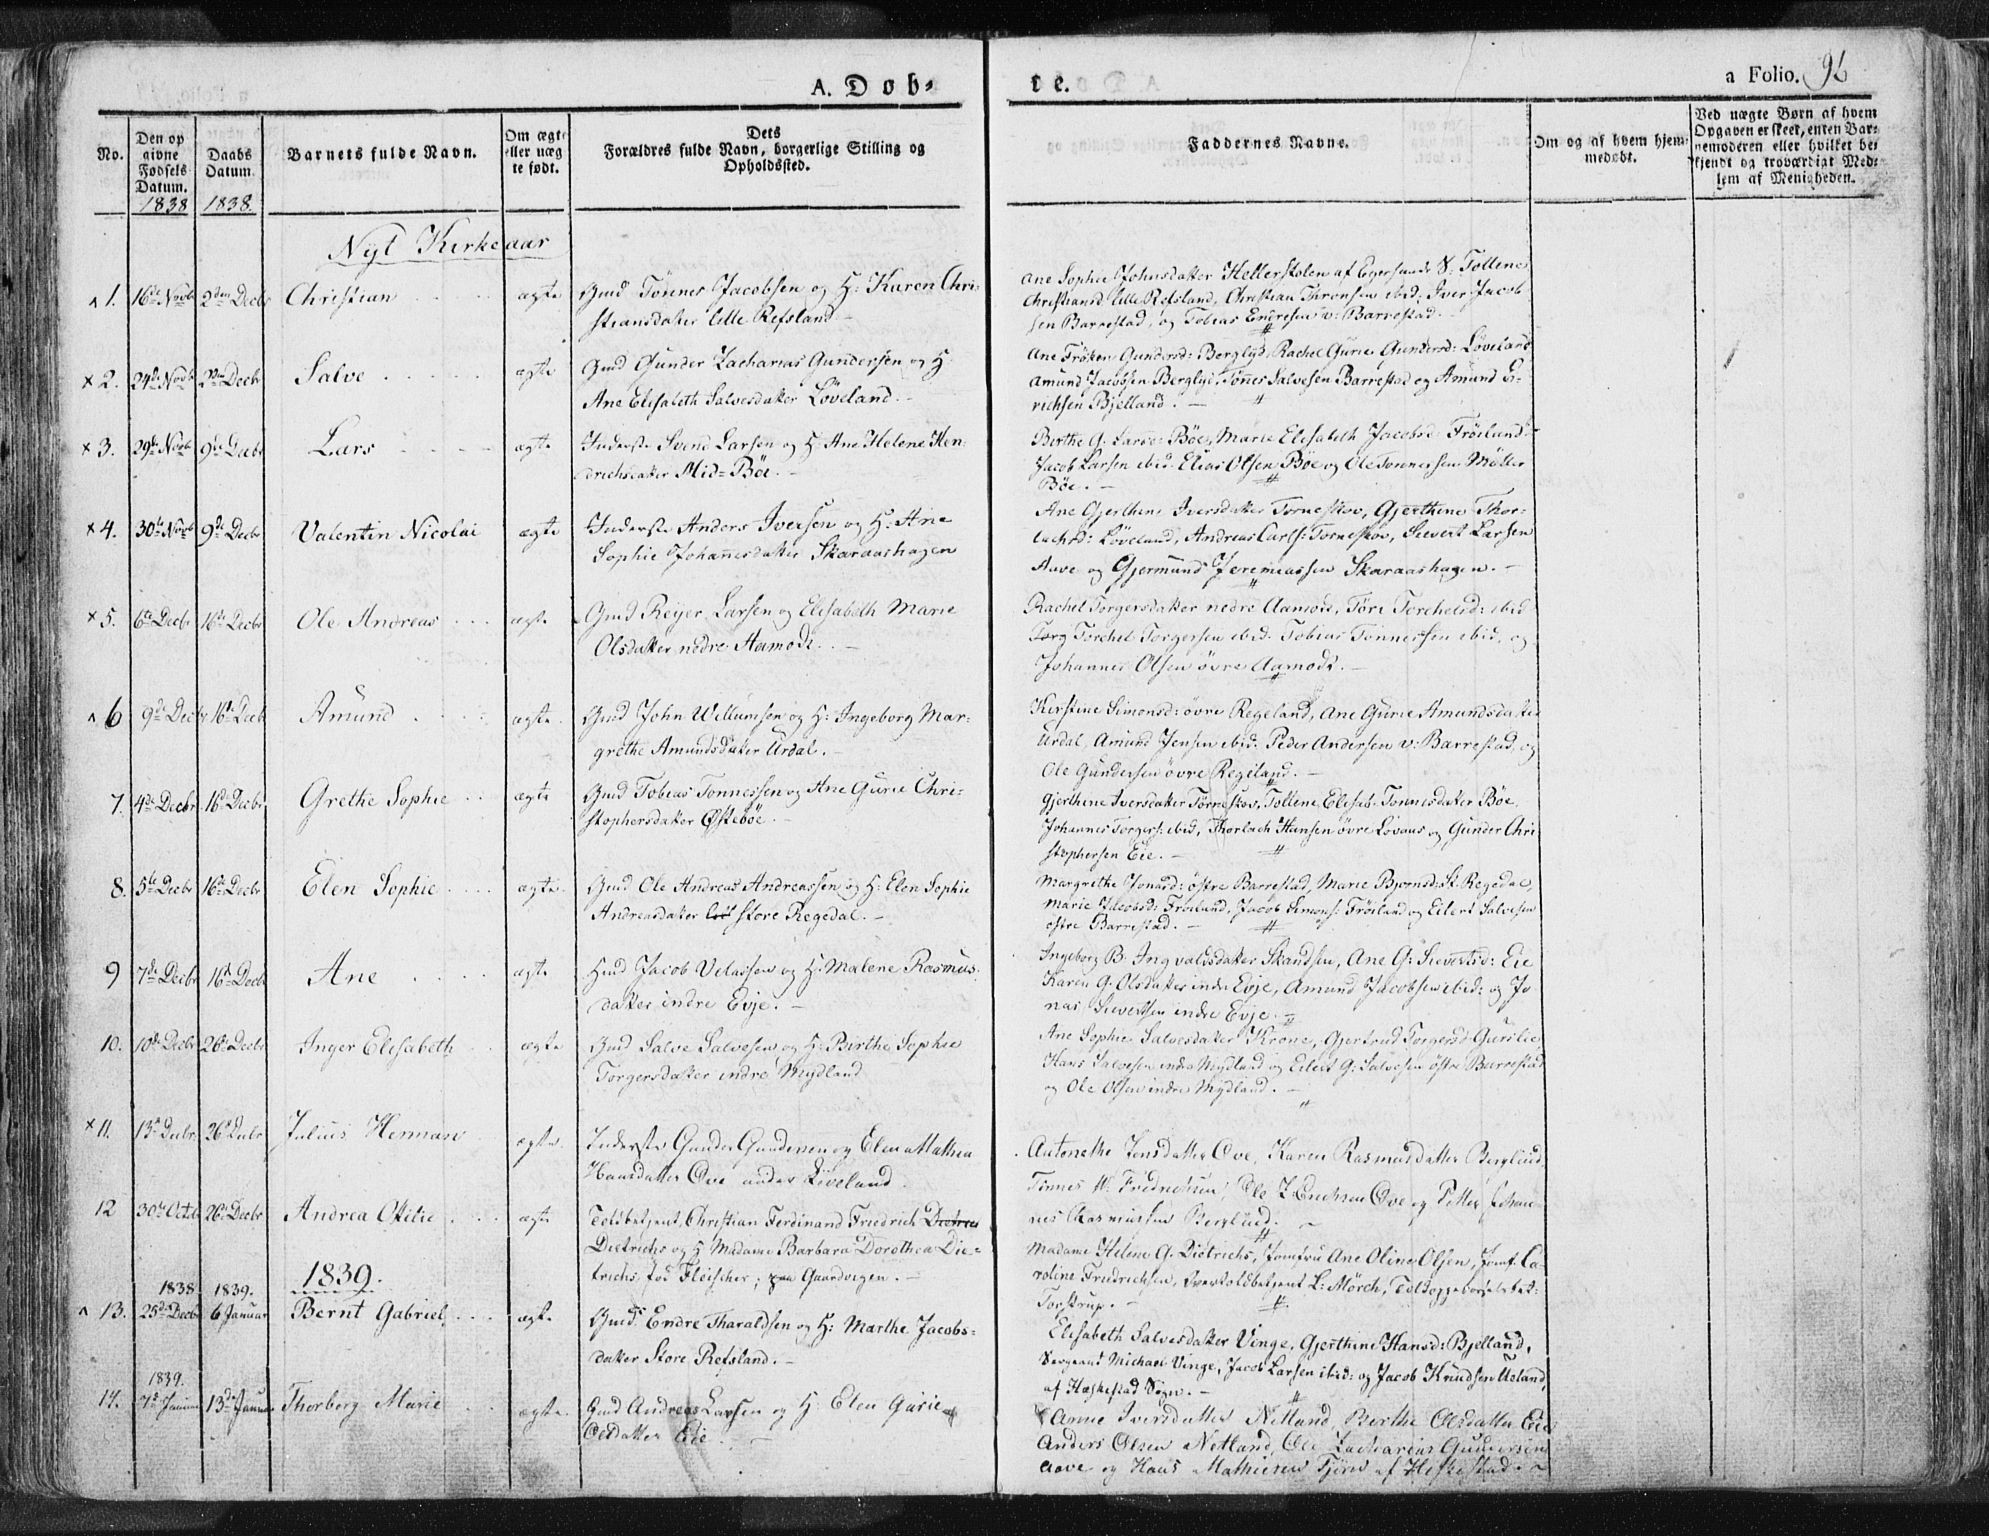 A. Døb-
re.
a Folio. 96
No.
Den opgivne Fødsels Datum. 1838
Daabs Datum. 1838.
Barnets fulde Navn.
Om ægte eller uægte født.
Dets Forældres fulde Navn, borgerlige Stilling og Opholdssted.
Faddernes Navne.
Om og af hvem hjemmedøbt.
Ved uægte Børn af hvem Opgaven er skeet, enten Barnemoderen eller hvilket bekjendt og troværdigt Medlem af Menigheden.
Nyt Kirkeaar
1. 16de Novb 2den Decbr Christian ægte Gmd Tönnes Jacobsen og H: Karen Chri-
stiansdatter lille Refsland
Ane Sophie Johnsdatter Hellerstolen af Egersunds S: Tollene
Christiansd lille Refsland, Christian Thronsen ibid: Iver Jacob
sen Barrestad, og Tobias Endresen v: Barrestad.
2. 24de Novb 2den Decbr Salve ægte Gmd Gunder Zacharias Gundersen og H.
Ane Elisabeth Salvesdatter Løveland.
Ane Fröken Gundersd: Berglyd, Rachel Gurie Gundersd: Løveland
Amund Jacobsen Berglyd, Tönnes Salvesen Barrestad og Amund E-
richsen Bjelland.
3. 29de Novb 9de Decbr Lars ægte Inderste Svend Larsen og H. Ane Helene Hen-
drichsdatter Mid-Böe.
Berthe G. Larsd: Böe, Marie Elisabeth Jacobsd: Fröiland
Jacob Larsen ibid. Elias Olsen Böe og Ole Tonnesen Möller
Böe.
4. 30te Novb 9de Decbr Valentin Nicolai ægte Inderste Anders Iversen og H: Ane
Sophie Johannesdatter Skaraashagen
Ane Gjerthine Iversdatter Torneskov, Gjerthine Thor-
lachsd: Løveland, Andreas Carls: Torneskov, Sievert Larsen
Aave og Gjermund Jeremiassen Skaraashagen.
5. 6te Decbr 16de Decbr Ole Andreas ægte Gmd Reyer Larsen og Elisabeth Marie
Olsdatter nedre Aamodt.
Rachel Torgersdatter nedre Aamodt, Töre Torchelsd: ibid
Torg Torchel Torgersen ibid. Tobias Tönnessen ibid, og
Johannes Olsen övre Aamodt.
6 9de Decbr 16de Decbr Amund ægte Gmd John Willumsen og H: Ingeborg Mar-
grethe Amundsdatter Urdal.
Kirstine Simonsd: övre Regeland, Ane Gurie Amundsdatter
Urdal, Amund Jensen ibid. Peder Andersen v: Barrestad, og
Ole Gundersen övre Regeland.
7. 4de Decbr 16de Decbr Grethe Sophie ægte Gmd Tobias Tonnessen og Ane Gurie Chri-
stophersdatter Østeböe.
Gjerthine Iversdatter Torneskov, Tollene Elisab. Tonnesdatter Böe,
Johannes Torgers: ibid, Thorlach Hansen övre Lövaas og Gunder Chri
stophersen Eie.
8. 5te Decbr 16de Decbr Elen Sophie ægte Gmd Ole Andreas Andreassen og H: Elen Sophie
Andreasdatter store Regedal.
Margrethe Jonasd: östre Barrestad, Marie Bjornsd: St: Regedal,
Marie Jacobsd: Fröiland, Jacob Simons: Fröiland og Eilert Salvesen
östre Barrestad.
9 7de Decbr 16de Decbr Ane ægte Hmd Jacob Velassen og H: Malene Rasmus
datter indre Evje.
Ingeborg B: Ingvaldsdatter Skandsen, Ane G: Sievertsd: Eie
Karen G. Olsdatter indre Evje, Amund Jacobsen ibid: og Jo
nas Sievertsen indre Evje.
10. 10de Decbr 26de Decbr Inger Elisabeth ægte Gmd Salve Salvesen og H: Birthe Sophie
Torgersdatter indre Mydland
Ane Sophie Salvesdatter Krone, Gjertrud Torgersd Gurslie,
Hans Salvesen indre Mydland og Eilert G: Salvesen östre Barrestad
og Ole Olsen indre Mydland.
11. 13de Decbr 26de Decbr Julius Herman ægte Inderste Gunder Gundersen og Elen Mathea
Hansdatter Ove under Löveland.
Antonette Jensdatter Ove, Karen Rasmusdatter Berglied,
Tönnes Fredrichsen, Ole Z: Erichsen Ove og Petter Johan-
nes Rasmussen Berglied.
12 30te Octbr 26de Decbr Andrea Ottilie ægte Toldbetjent Christian Ferdinand Friedrich Dietrics
Dietrichs og H Madame Barbara Dorothea Die-
trichs, föd Fleischer; Gaardvigen.
Madame Helene G. Dietrichs, Jomfru Ane Oline Olsen, Jomf. Ca-
roline Fredrichsen, Overtoldbetjent L: Mörch, Toldoppebørselsbet-
Torstrup.
1839.
1838 1839.
13. 25de Decbr 6 Januar Bernt Gabriel ægte Gmd: Endre Tharaldsen og H: Marthe Jacobs-
datter Store Refsland.
Elisabeth Salvesdatter Vinge, Gjerthine Hansd: Bjelland,
Sergeant Michael Vinge, Jacob Larsen ibid: og Jacob Knudsen Ueland,
af Heskestad Sogn.
1839.
14. 7de Januar 13de Januar Thorborg Marie ægte Gmd Andreas Larsen og H Elen Gurie
Olsdatter Eie.
Anne Iversdatter Netland, Berthe Olsdatter Eie
Anders Olsen Netland, Ole Zacharias Gundersen
Aave og Hans Mathiesen Tjörn af Heskestad.